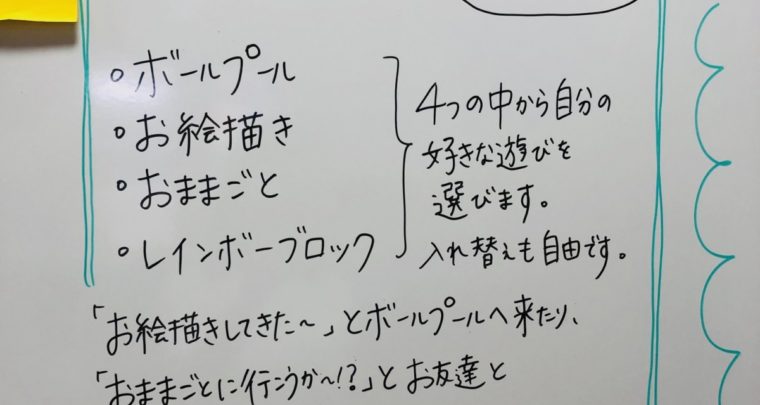 ○ボールプール
○お絵描き
○おままごと
○レインボーブロック
4つの中から自分の
好きな遊びを
選びます。
入れ替えも自由です。
「お絵描きしてきた〜」とボールプールへ来たり、
「おままごとに行こうか〜!?」とお友達と